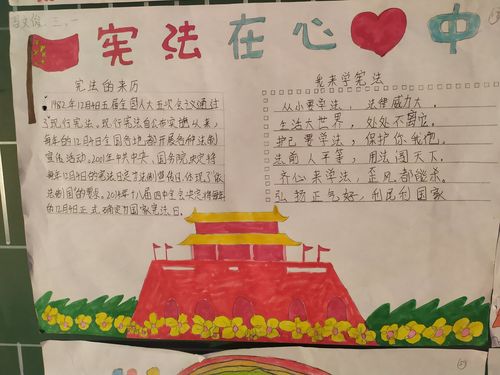 三、一
宪法在心中
宪法的来历
1982年12月4日五届全国人大五次会议通过
了现行宪法。现行宪法自公布实施以来，
每年的12月4日全国各地都开展各种法制
宣传活动。2001年中共中央、国务院决定将
每年12月4日的宪法日定为法制宣传日，体现了依
法制国的要求。2014年十八届四中全会决定将每年
的12月4日正式确定为国家宪法日。
我来学宪法
从小要学法，法律威力大。
生活大世界，处处不离它。
护己要学法，保护你我他。
法前人平等，用法闯天下。
齐心来学法，歪风都能杀。
弘扬正气好，利民利国家